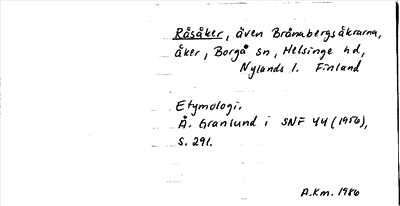 Råsåker, även Brånabergsåkrarna,
åker, Borgå sn, Helsinge hd,
Nylands l. Finland
Etymologi.
Å. Granlund i SNF 44 (1956),
s. 291.
A.Km. 1986